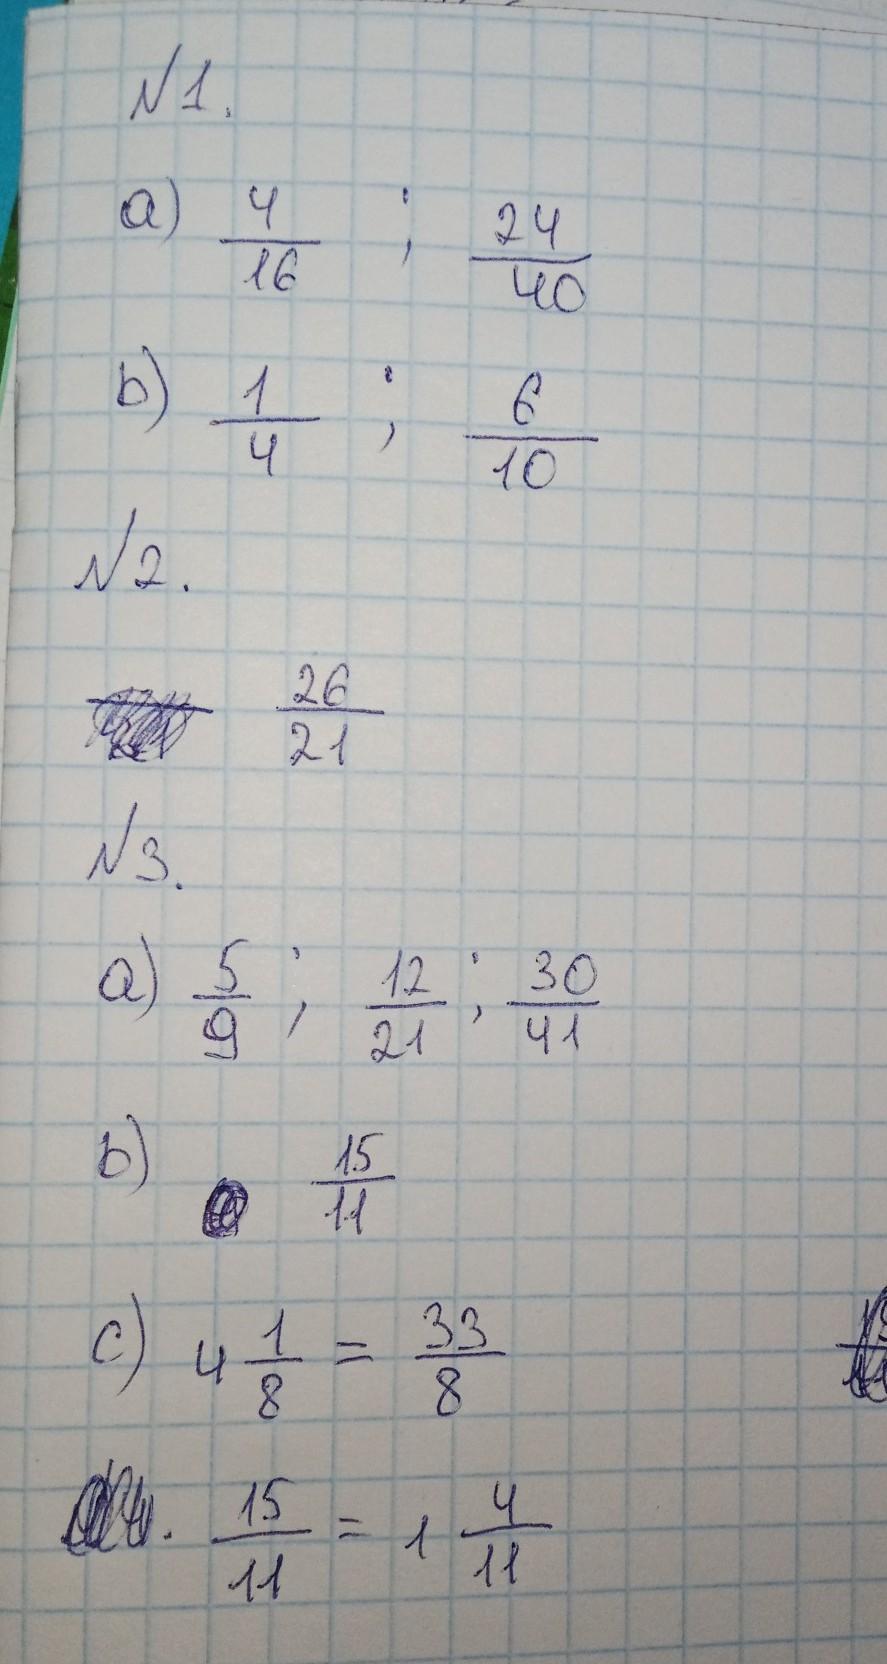 №1.
a) 4/16 ; 24/40
b) 1/4 ; 6/10
№2.
26/21
№3.
a) 5/9 ; 12/21 ; 30/41
b) 15/11
c) 4 1/8 = 33/8
15/11 = 1 4/11